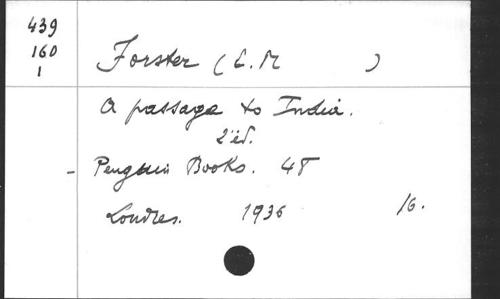 439
160
1
Forster (E. M )
A passage to India.
2 éd.
- Penguin Books. 48
Londres. 1936 16.